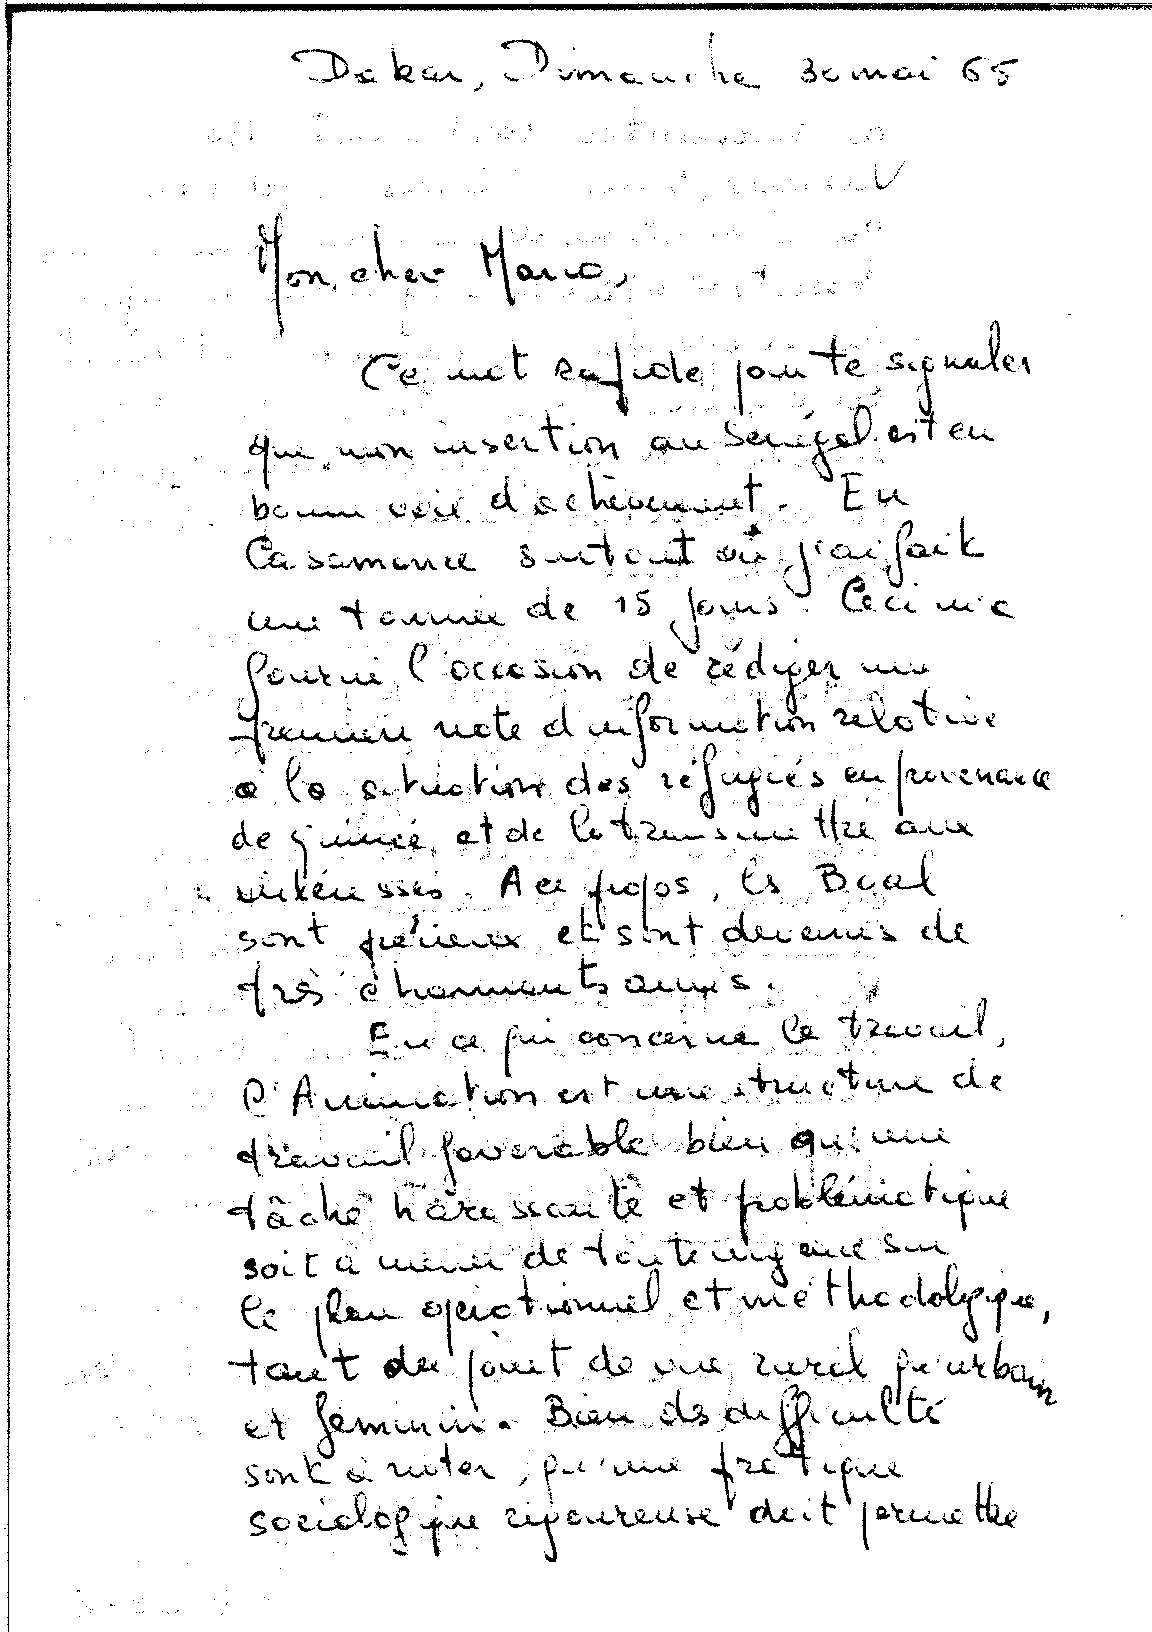 Dakar, Dimanche 30 mai 65
Mon cher Mario,
Ce mot rapide pour te signaler
que mon insertion au Sénégal est en
bonne voie d'achèvement. En
Casamance surtout où j'ai fait
une tournée de 15 jours. Ceci m'a
fourni l'occasion de rédiger une
première note d'information relative
à la situation des réfugiés en provenance
de guinée, et de la transmettre aux
intéressés. A ce propos, les Boal
sont précieux et sont devenus de
très charmants amis.
En ce qui concerne le travail,
l'Animation est une structure de
travail favorable bien qu'une
tâche harassante et problématique
soit à mener de toute urgence sur
le plan opérationnel et méthodologique,
tant du point de vue rural qu'urbain
et féminin. Bien des difficultés
sont à noter, qu'une pratique
sociologique rigoureuse doit permettre